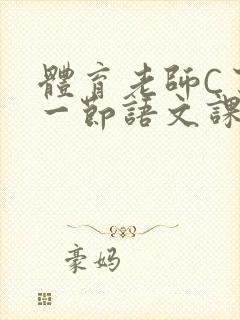 體育老師C了
一節語文課
豪妈